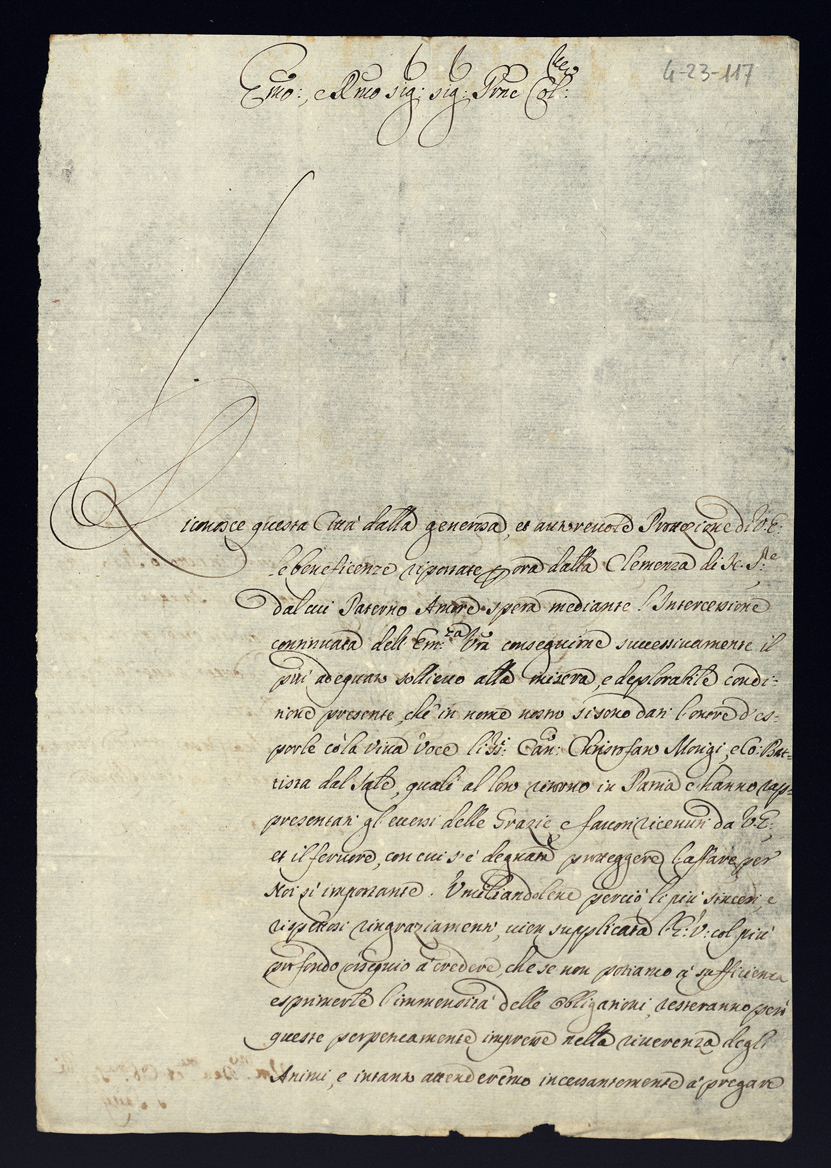 4-23-117
Emo:, e Rmo sig: sig: Prne Col:mo
Riconosce questa Città dalla generosa, et autorevole Protezione di V. E:
le beneficenze riportate p ora dalla Clemenza di N. S.re
dal cui Paterno Amore spera mediante l'Intercessione
continuata dell' Em.za Vra conseguirne successivamente il
più adeguato sollievo alla misera, e deplorabile condi-
zione presente, che in nome nostro si sono dati l'onore d'es-
porle cò la viva voce li Sig:ri Can: Christofano Monzi, e Cò: Bat-
tista dal Sale, quali al loro ritorno in Patria ci hanno rap-
presentati gl'eccessi delle Grazie, e favori ricevuti da V. E:,
et il fervore, con cui s'è degnata proteggere l'affare per
Noi si importante. Umiliandolene perciò li più sinceri, e
rispettosi ringraziamenti, vien supplicata l'E: V: col più
profondo ossequio à credere, che se non potiamo à sufficienza
esprimerle l'immensità delle obligazioni, resteranno però
queste perpetuamente impresse nella riverenza degli
Animi, e intanto attenderemo incessantemente à pregare